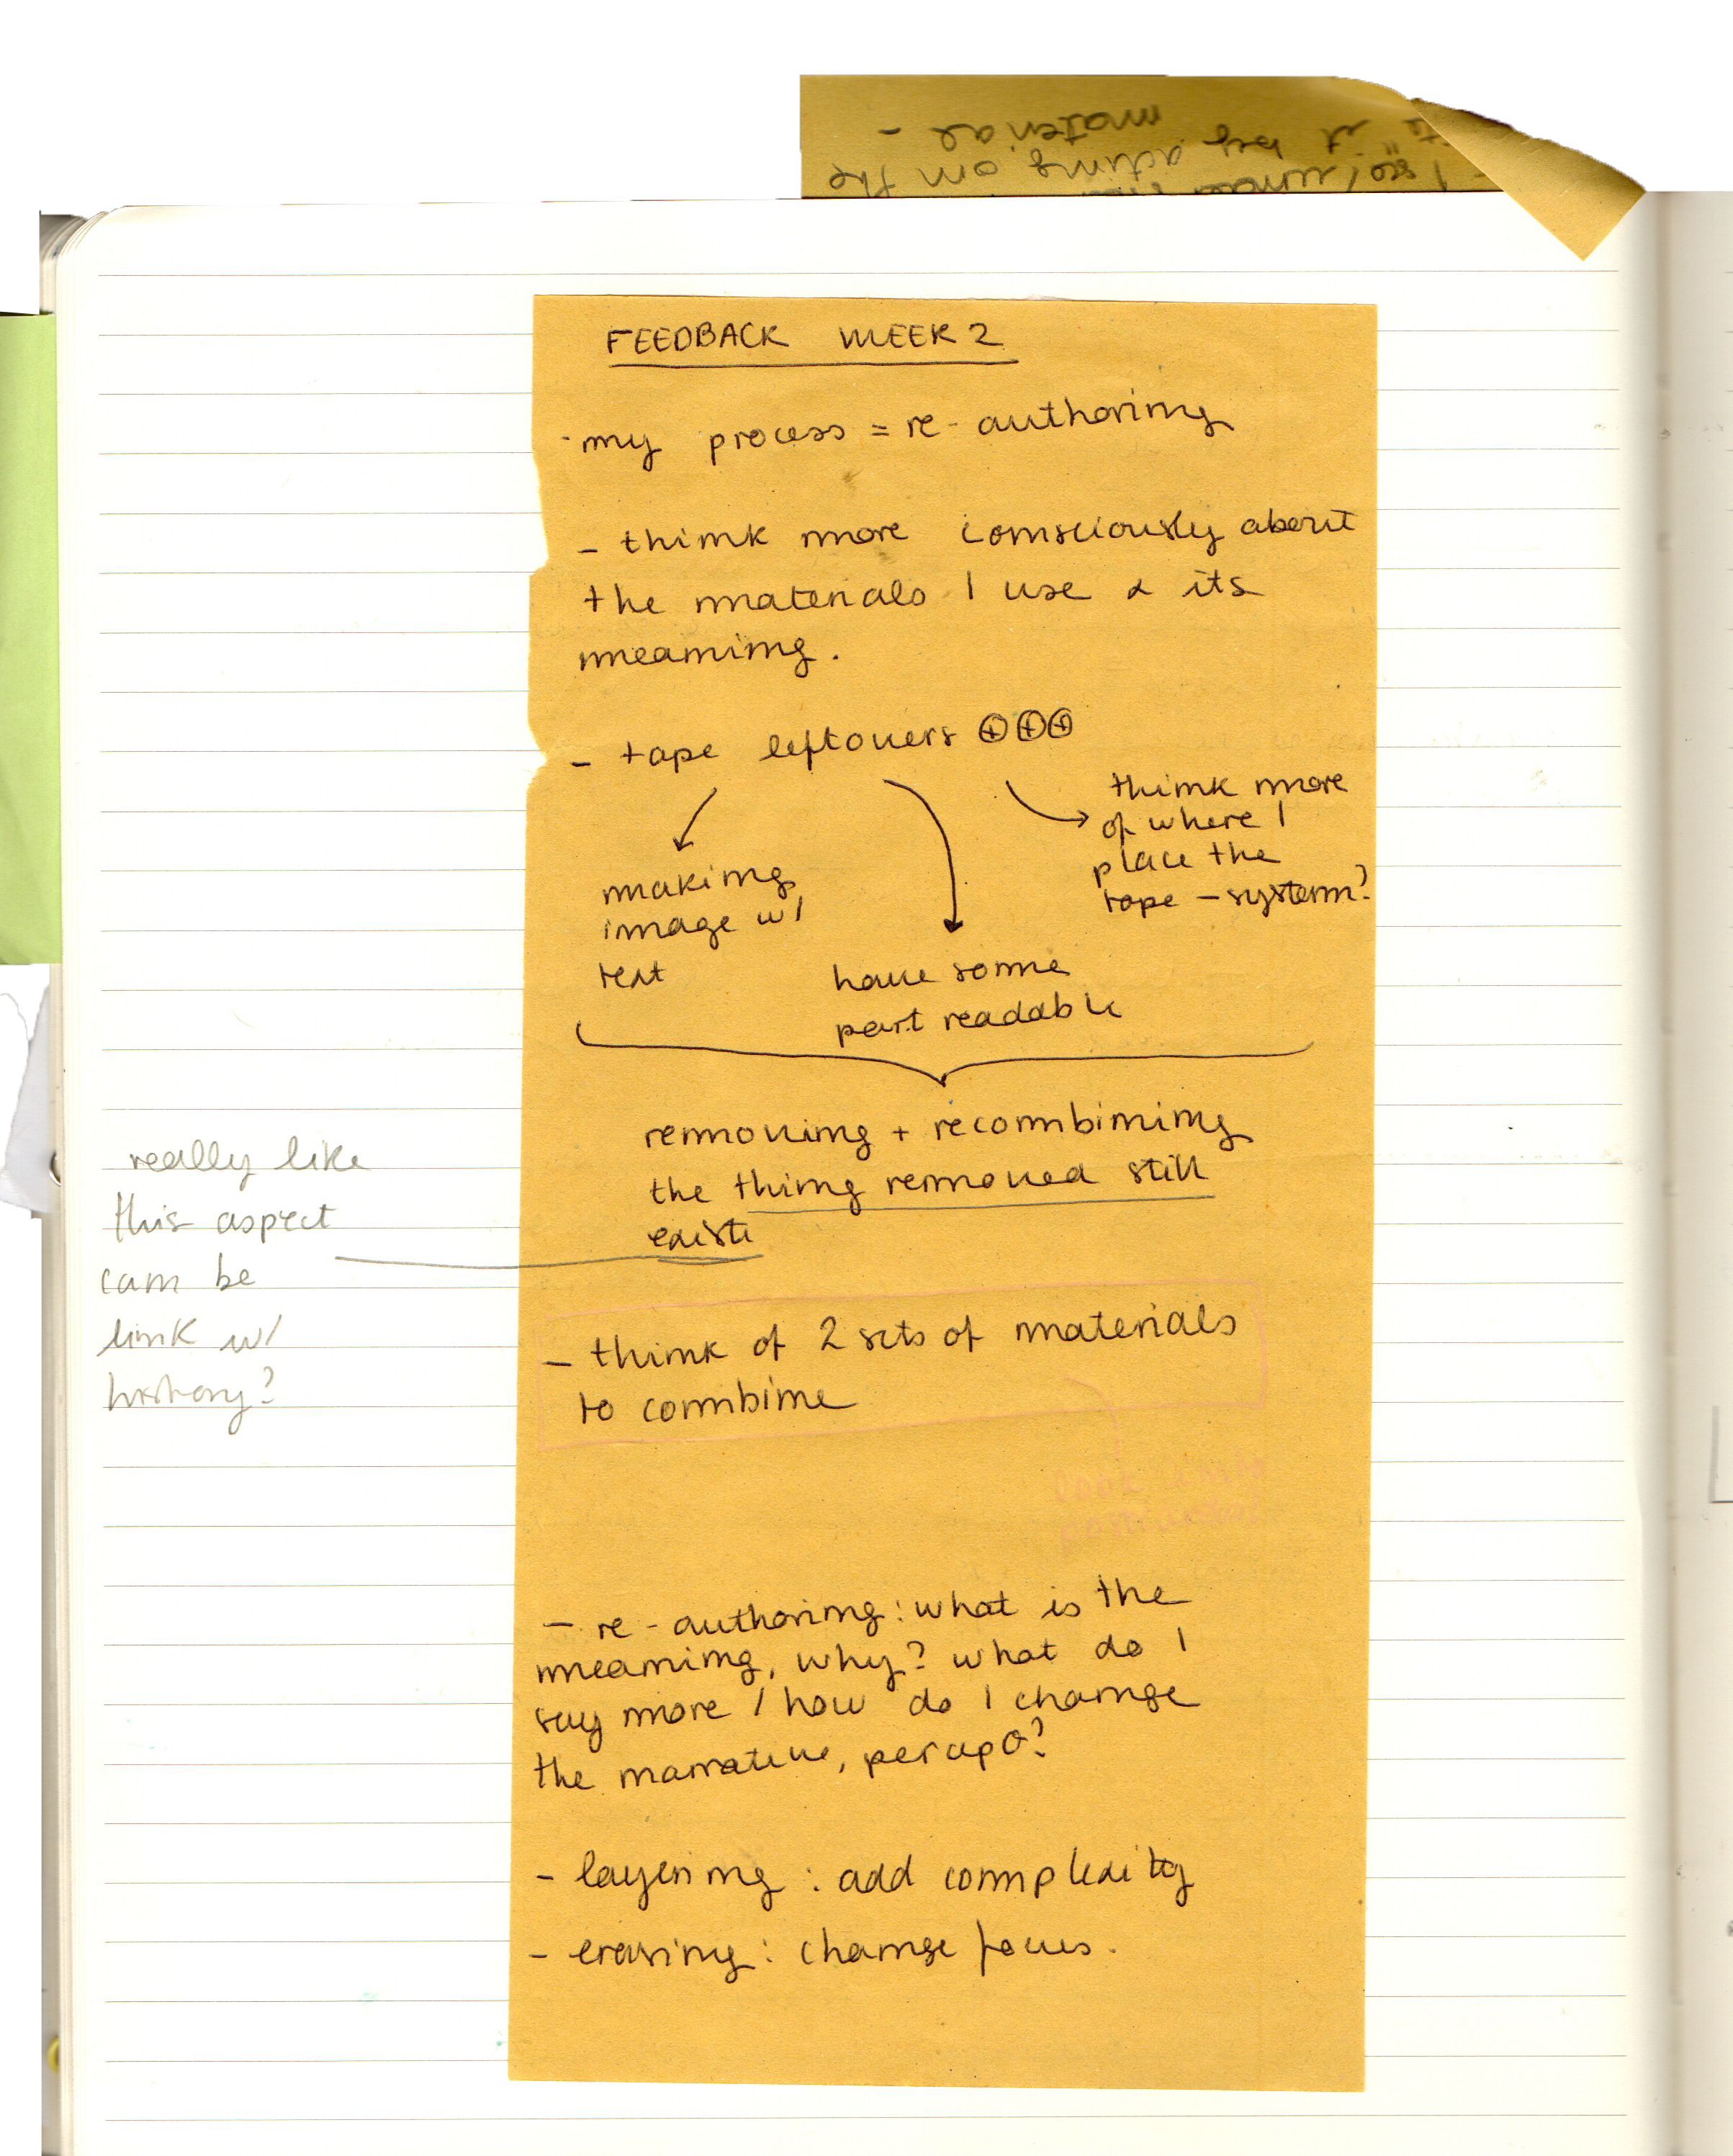 acting on the
it by
material -
FEEDBACK WEEK 2
- my process = re-authoring
- think more consciously about
the materials I use & its
meaning.
- tape leftovers ⊕⊕⊕
making
image w/
text
have some
part readable
think more
of where I
place the
tape - system?
removing + recombining
the thing removed still
exists
really like
this aspect
can be
link w/
history?
- think of 2 sets of materials
to combine
look
- re-authoring: what is the
meaning, why? what do I
say more / how do I change
the narrative,
- layering: add complexity
- erasing: change focus.